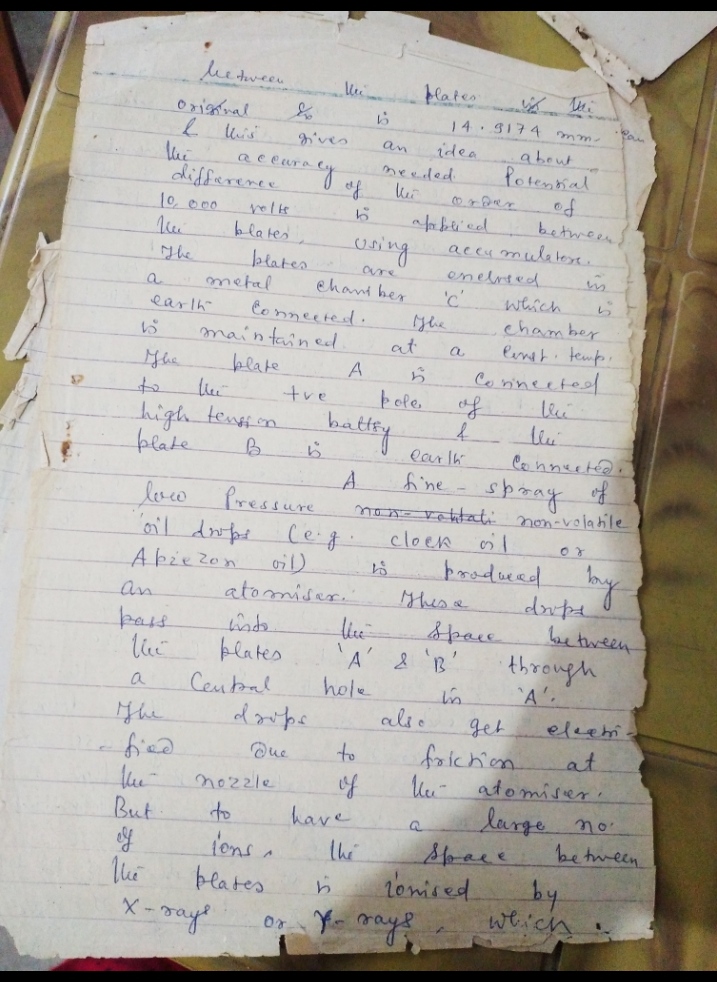 between the plates is the
original expt is 14.9174 mm.
& this gives an idea about
the accuracy needed. Potential
difference of the order of
10,000 volts is applied between
the plates, using accumulators.
The plates are enclosed in
a metal chamber 'C' which is
earth connected. The chamber
is maintained at a const. temp.
The plate A is connected
to the +ve pole of the
high tension battry & the
plate B is earth connected.
A fine-spray of
low pressure non-volatile
oil drops (e.g. clock oil or
Apiezon oil) is produced by
an atomiser. These drops
pass into the space between
the plates 'A' & 'B' through
a central hole in 'A'.
The drops also get electri-
fied due to friction at
the nozzle of the atomiser.
But to have a large no.
of ions, the space between
the plates is ionised by
X-rays or γ-rays, which